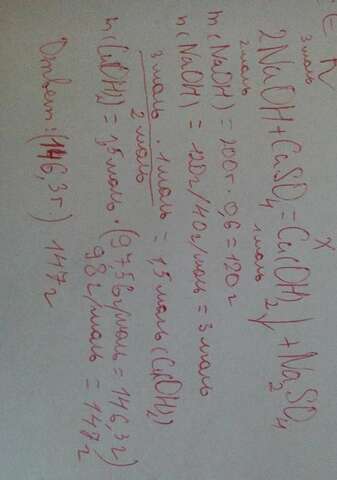 3 моль X
2NaOH + CuSO₄ = Cu(OH)₂↓ + Na₂SO₄
2 моль 1 моль
m(NaOH) = 200г · 0,6 = 120 г
n(NaOH) = 120г/40г/моль = 3 моль
3 моль/2 моль · 1 моль = 1,5 моль (CuOH)₂
n(CuOH)₂ = 1,5 моль · (97,56г/моль = 146,3г)
98г/моль = 147г
Ответ: (146,3г.) 147г